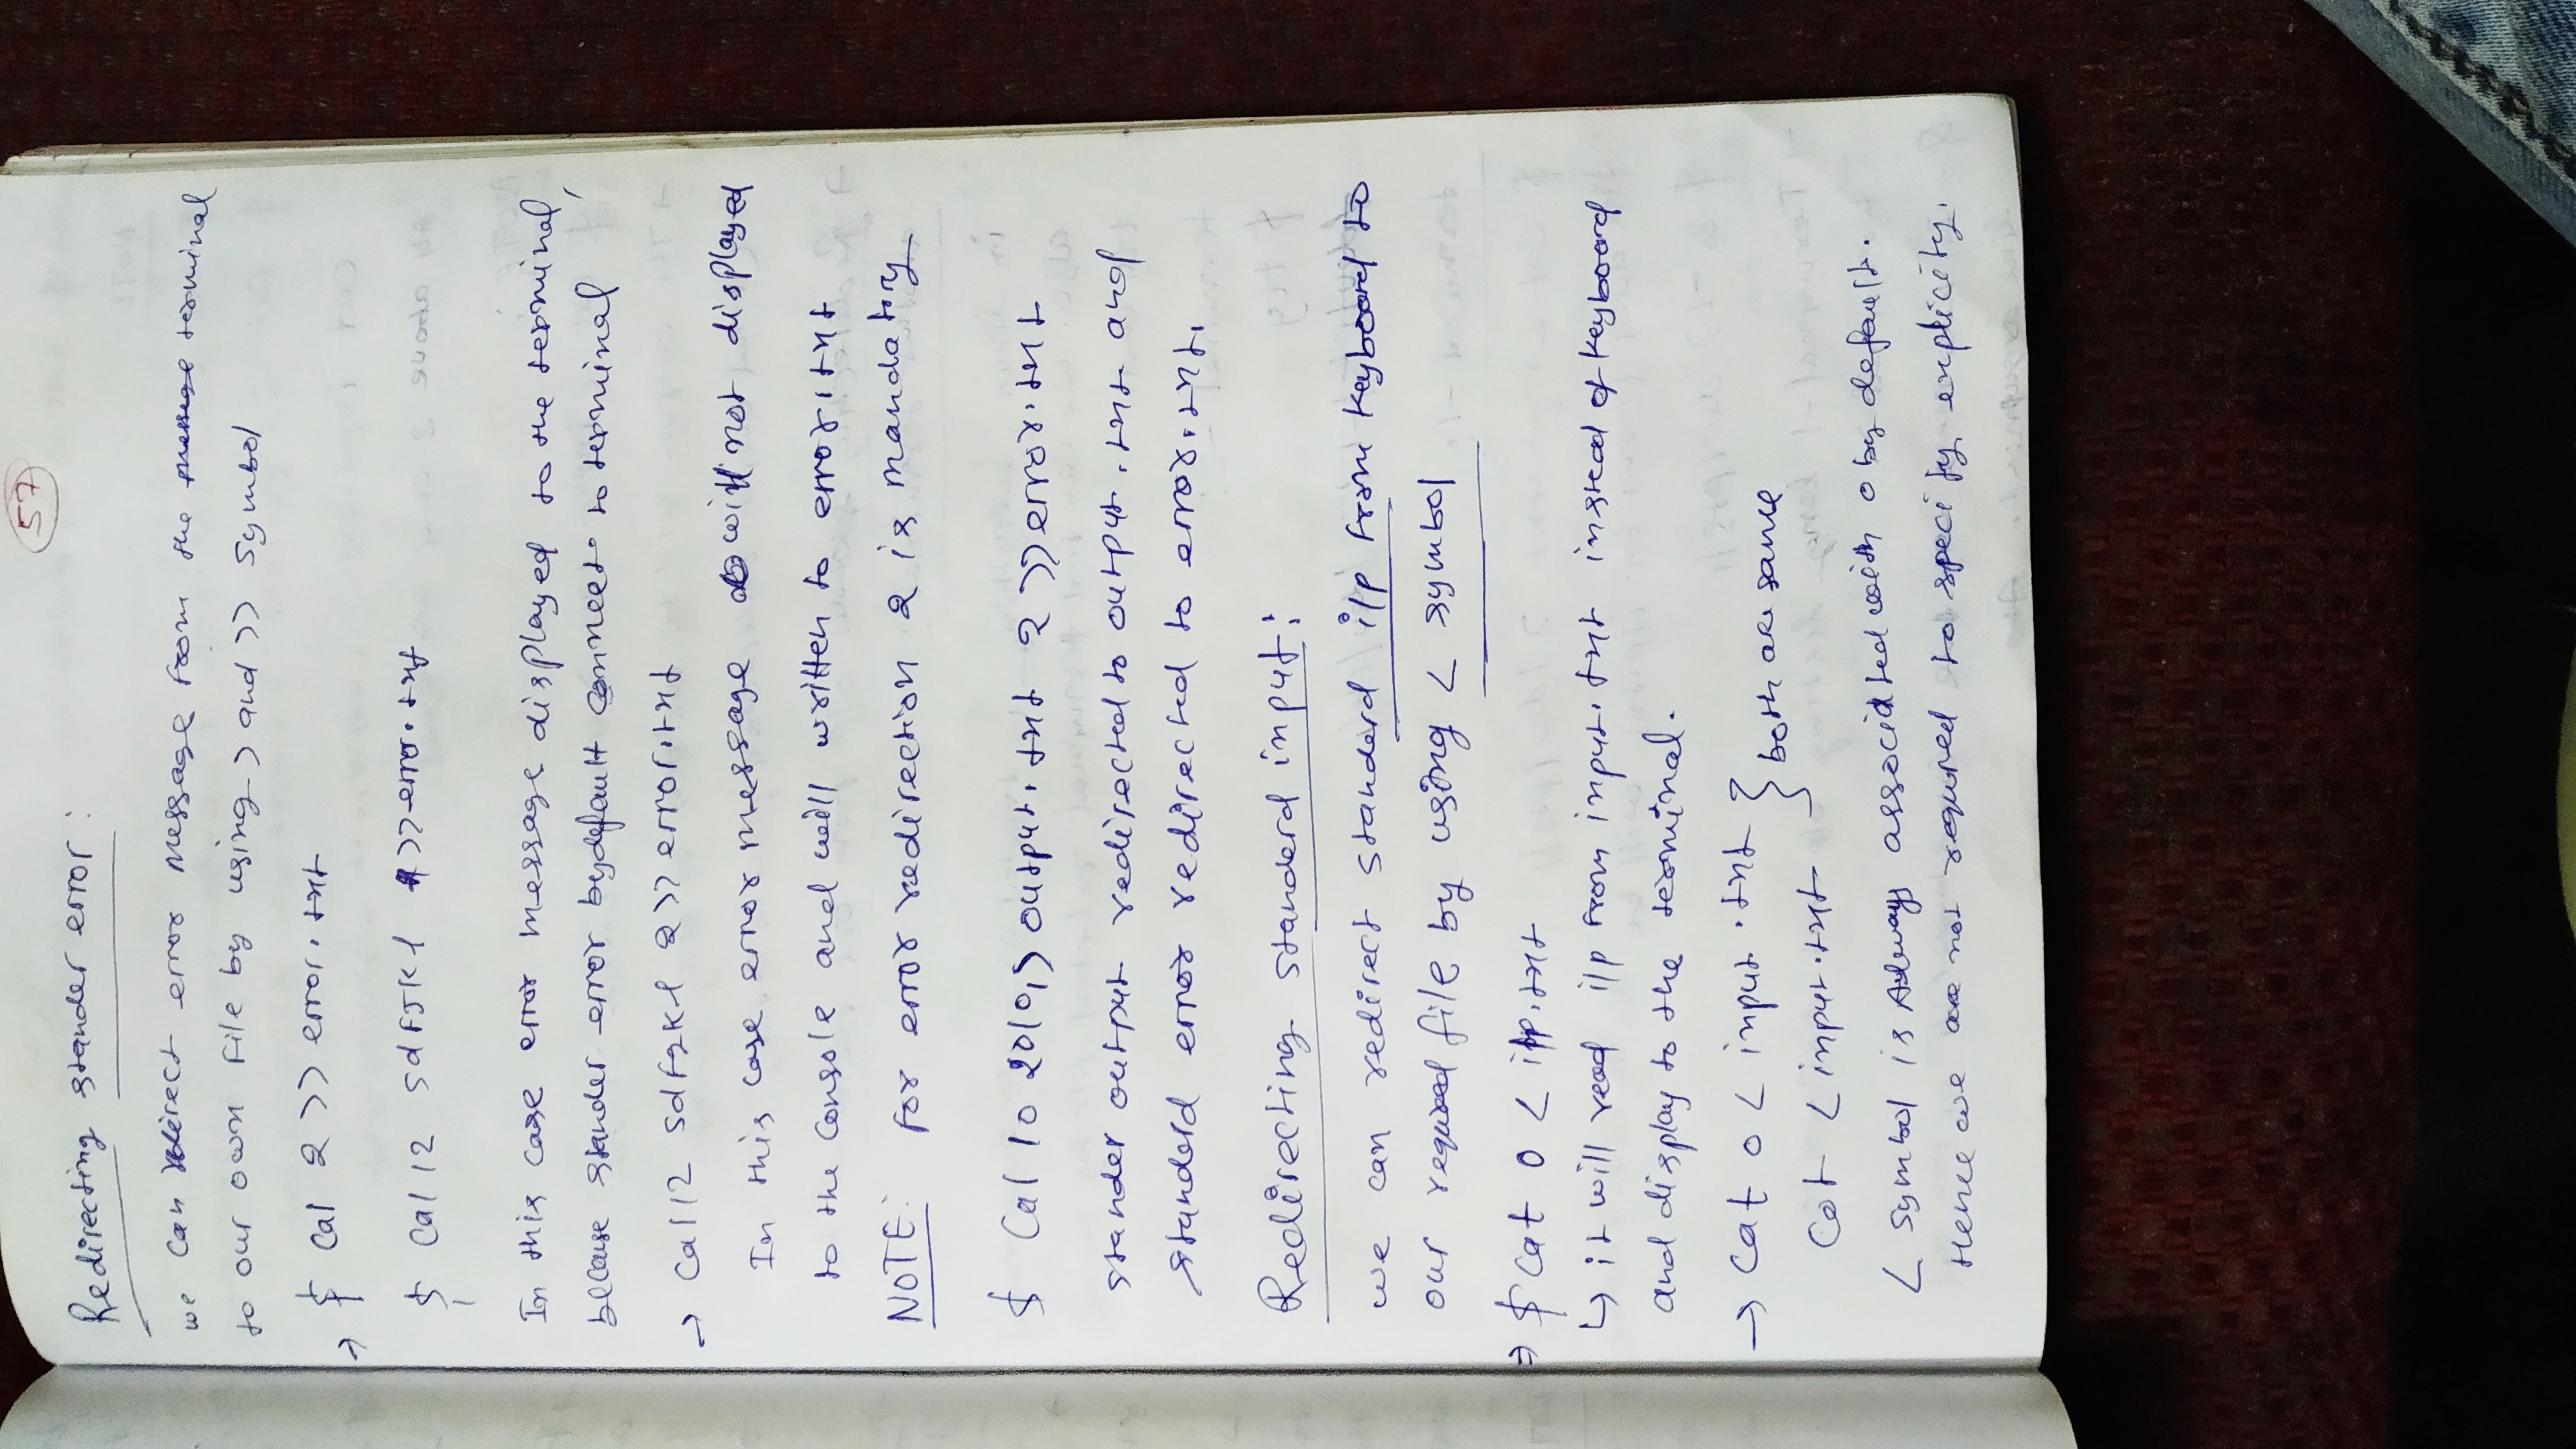 57
Redirecting stander error:
we can redirect error message from the terminal
to our own file by using > and >> symbol
→ $ cal 2 >> error.txt
$ cal 12 sdfjkl >> error.txt
In this case error message displayed to the terminal,
because stander error bydefault connect to terminal
→ cal 12 sdfskl 2 >> error.txt
In this case error message will not displayed
to the console and will written to error.txt
NOTE: for error redirection 2 is mandatory
$ cal 10 2010 1> output.txt 2 >> error.txt
stander output redirected to output.txt and
standerd error redirected to error.txt.
Redirecting standerd input:
we can redirect standerd i/p from keyboard to
our required file by using < symbol
⇒ $ cat 0 < i/p.txt
↳ it will read i/p from input.txt instead of keyboard
and display to the terminal.
→ cat 0 < input.txt } both are same
cat < input.txt
< symbol is Always associated with 0 by default.
Hence we are not required to specify explicity.